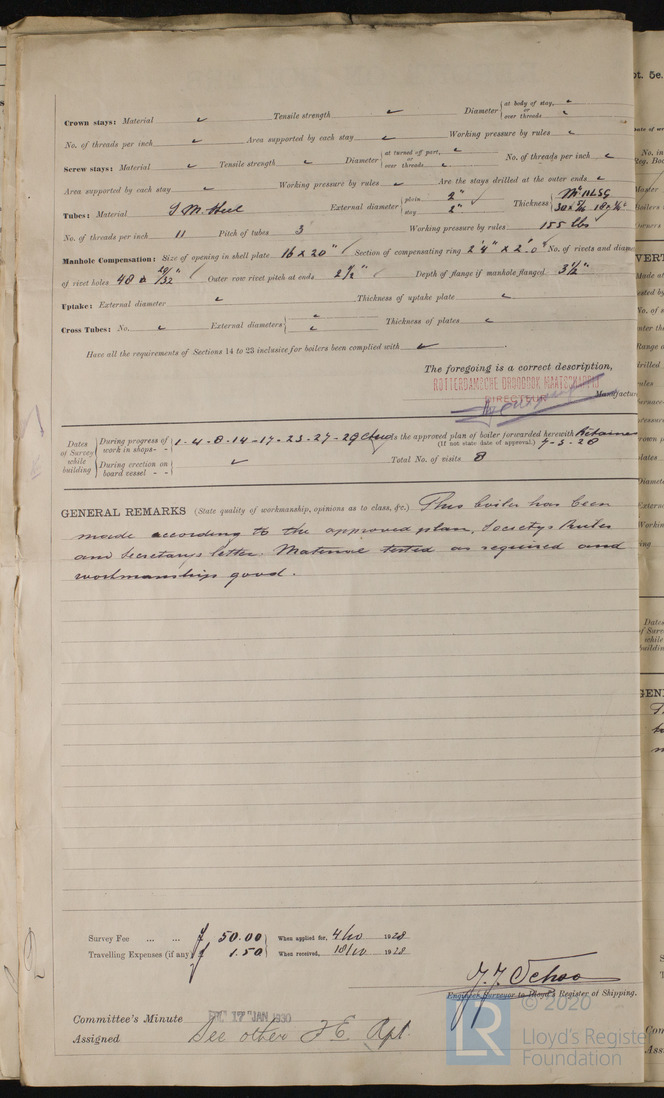 Crown stays: Material ✓ Tensile strength ✓ Diameter { at body of stay, ✓ or over threads ✓
No. of threads per inch ✓ Area supported by each stay ✓ Working pressure by rules ✓
Screw stays: Material ✓ Tensile strength ✓ Diameter { at turned off part, ✓ or over threads ✓ No. of threads per inch ✓
Area supported by each stay ✓ Working pressure by rules ✓ Are the stays drilled at the outer ends ✓
Tubes: Material S. M. Steel External diameter { plain 2" stay 2" Thickness {
No. of threads per inch 11 Pitch of tubes 3 Working pressure by rules 155 lbs
Manhole Compensation: Size of opening in shell plate 16 x 20" Section of compensating ring 2'4" x 2'.0" No. of rivets and diame
of rivet holes 48 29/32" Outer row rivet pitch at ends 2 1/2" Depth of flange if manhole flanged 3 1/2"
Uptake: External diameter ✓ Thickness of uptake plate ✓
Cross Tubes: No. ✓ External diameters { ✓ ✓ Thickness of plates ✓
Have all the requirements of Sections 14 to 23 inclusive for boilers been complied with ✓
The foregoing is a correct description,
ROTTERDAMSCHE DROOGDOK MAATSCHAPPIJ
DIRECTEUR Manufactur
Dates of Survey while building { During progress of work in shops - - 1-4-8-14-17-23-27-29 Is the approved plan of boiler forwarded herewith Retained
(If not state date of approval.) 7-3-28
During erection on board vessel - - ✓ Total No. of visits 8
GENERAL REMARKS (State quality of workmanship, opinions as to class, &c.) This boiler has been
made according to the approved plan, Society's Rules
and Secretary's letter. Material tested as required and
workmanship good.
Survey Fee ... ... f 50.00 When applied for, 4/10 1928
Travelling Expenses (if any) f 1.50 When received, 18/10 1928
J. J. Schoo
Engineer Surveyor to Lloyd's Register of Shipping.
Committee's Minute 17 JAN 1930
Assigned See other F.E. Rpt.
© 2020
LR Lloyd's Register
Foundation